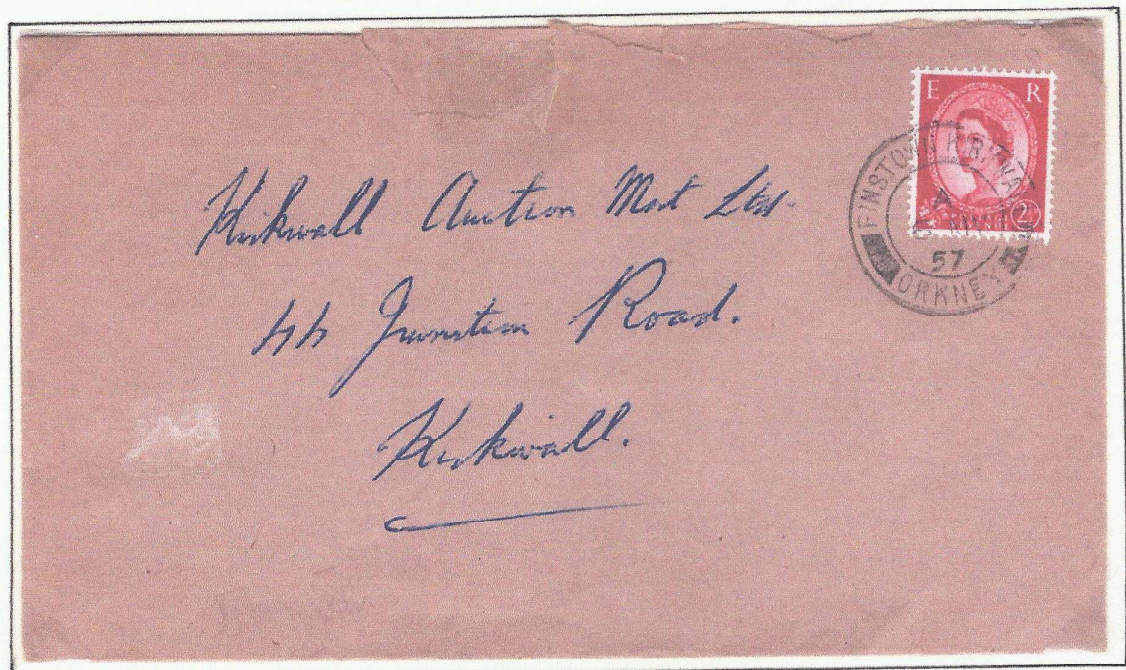 E R
FINSTOWN KIRKWALL
57
ORKNEY
Kirkwall Auction Mart Ltd.
44 Junction Road.
Kirkwall.